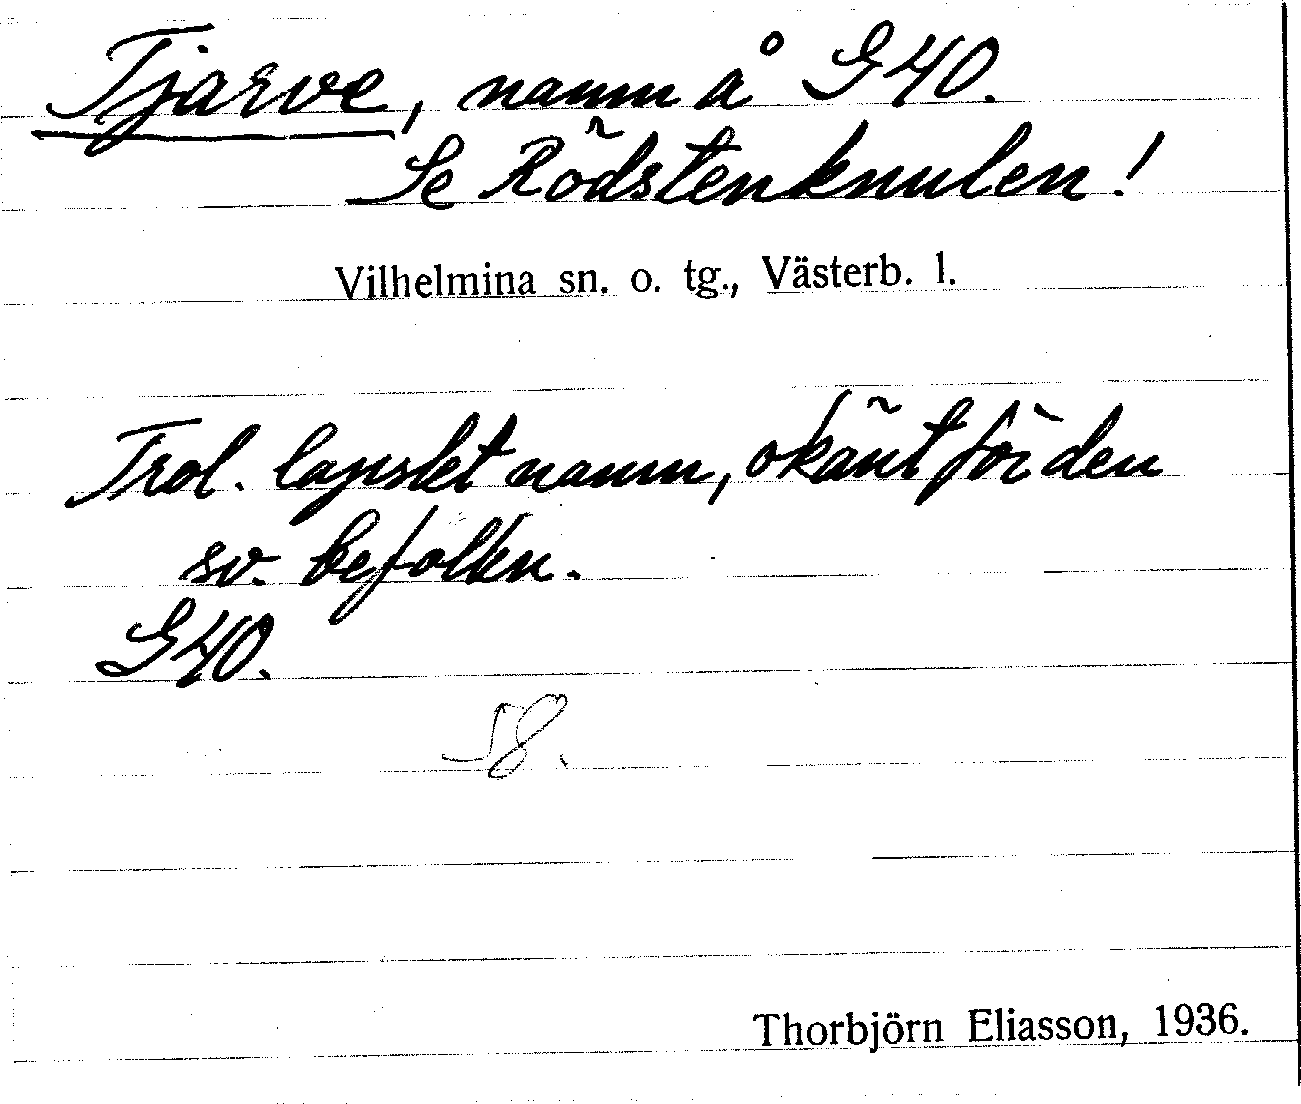 Tjarve, namn å G40.
Se Rödstenknulen!
Vilhelmina sn. o. tg., Västerb. l.
Trol. lapskt namn, okänt för den
sv. befolkn.
G40.
58.
Thorbjörn Eliasson, 1936.